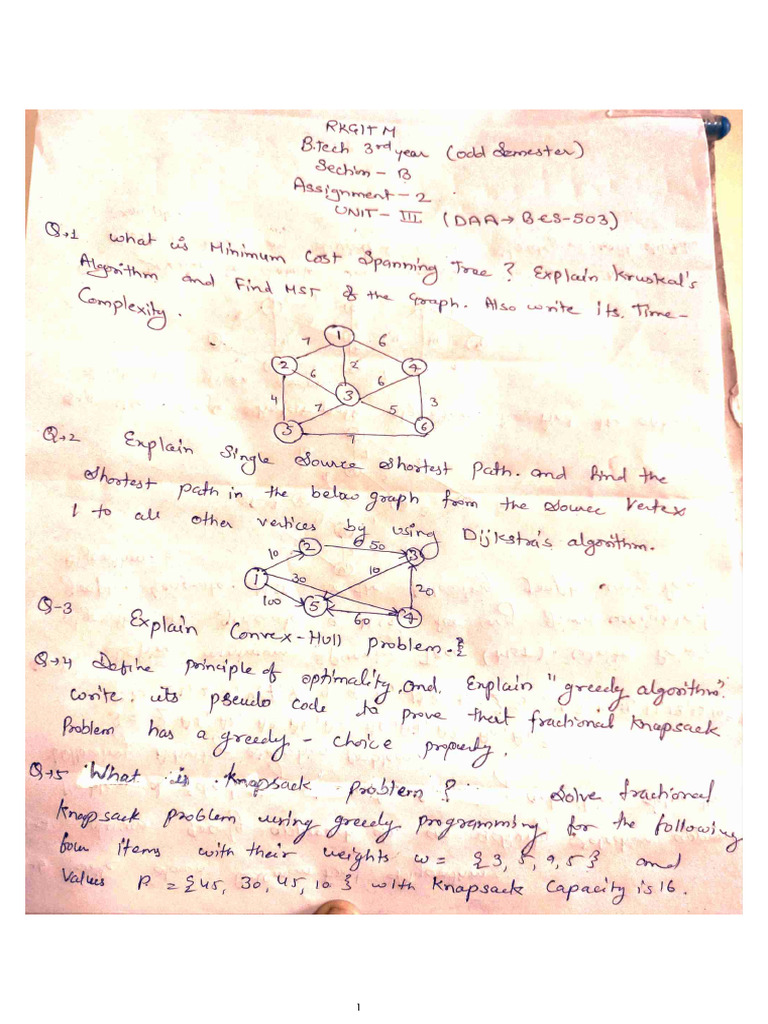 RKGITM
B.Tech 3rd year (odd Semester)
Section - B
Assignment - 2
UNIT - III (DAA → BCS-503)
Q→1 What is Minimum Cost Spanning Tree? Explain Kruskal's
Algorithm and Find MST of the Graph. Also write its Time-
Complexity.
1
7 6
2 6 2 6 4
3
4 7 5 3
5 6
7
Q→2 Explain Single Source Shortest Path. and find the
Shortest path in the below graph from the source Vertex
1 to all other vertices by using Dijkstra's algorithm.
2 50 3
10 10
1 30 20
100 5 60 4
Q-3 Explain Convex-Hull problem.
Q→4 Define principle of optimality and Explain "greedy algorithm".
write its pseudo code to prove that fractional Knapsack
Problem has a greedy - choice property.
Q→5 What is Knapsack problem? Solve fractional
Knapsack problem using greedy programming for the following
four items with their weights w = {3, 5, 9, 5} and
values P = {45, 30, 45, 10} with Knapsack Capacity is 16.
1